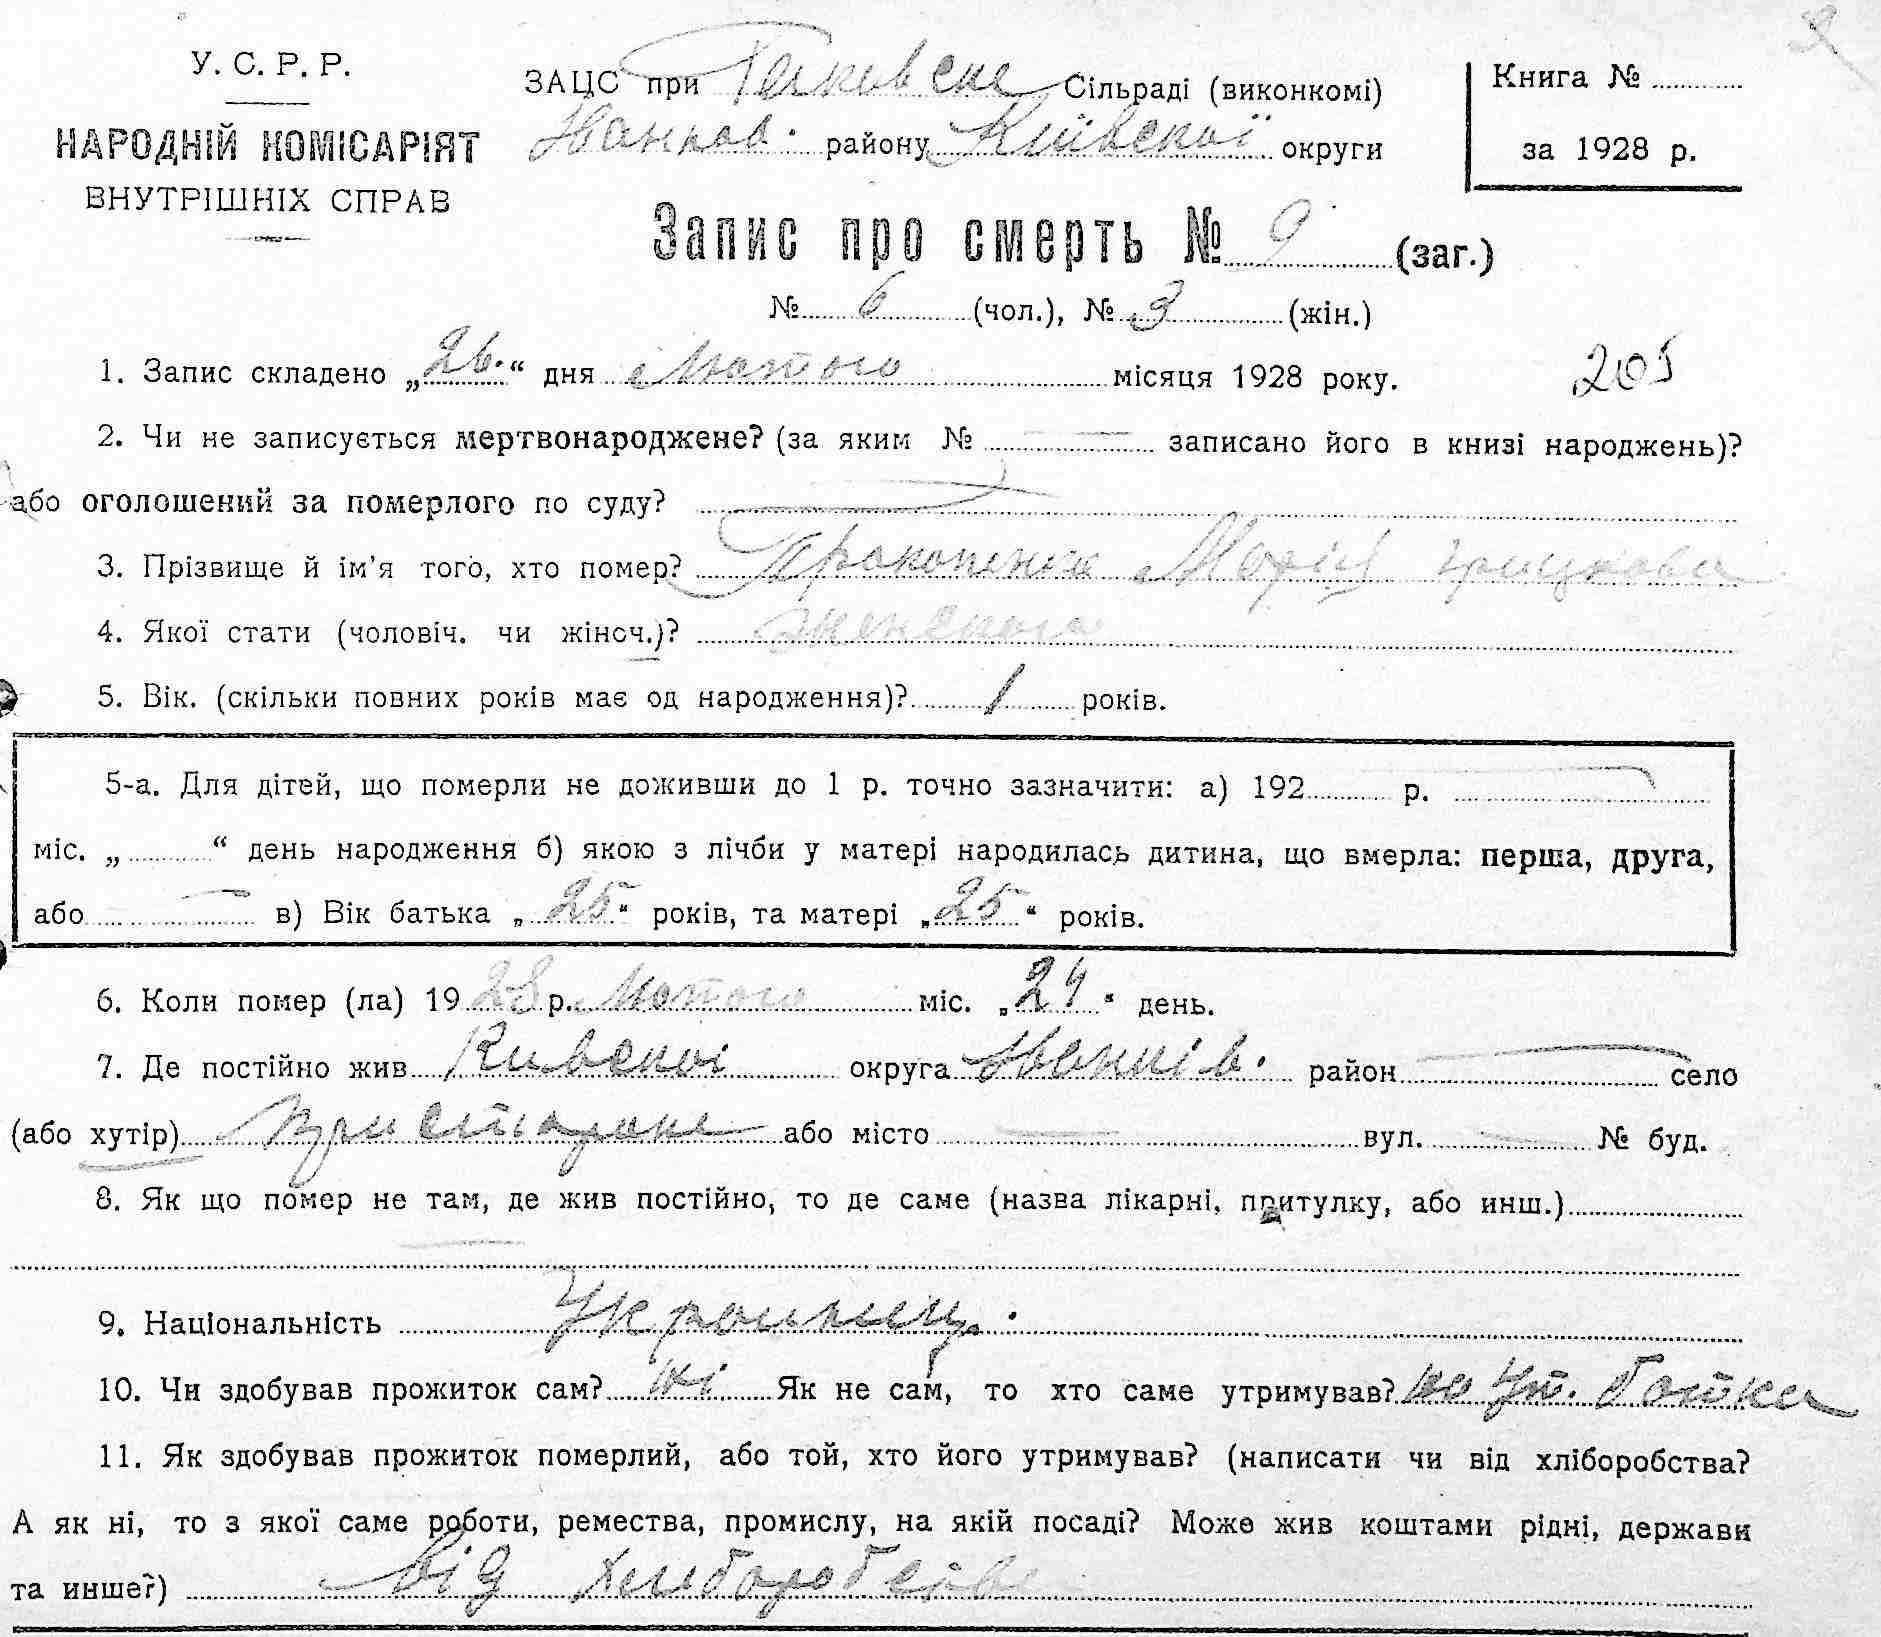 У. С. Р. Р.
НАРОДНІЙ КОМІСАРІЯТ
ВНУТРІШНІХ СПРАВ
ЗАЦС при Сільраді (виконкомі)
району Київскої округи
Книга №
за 1928 р.
Запис про смерть № 9 (заг.)
№ 6 (чол.), № 3 (жін.)
1. Запис складено „26.“ дня Лютого місяця 1928 року. 205
2. Чи не записується мертвонароджене? (за яким № записано його в книзі народжень)?
або оголошений за померлого по суду?
3. Прізвище й ім'я того, хто помер? Прокопенко Марія
4. Якої статі (чоловіч. чи жіноч.)? женского
5. Вік. (скільки повних років має од народження)? 1 років.
5-а. Для дітей, що померли не доживши до 1 р. точно зазначити: а) 192 р.
міс. „ “ день народження б) якою з лічби у матері народилась дитина, що вмерла: перша, друга,
або в) Вік батька „25“ років, та матері „25“ років.
6. Коли помер (ла) 1928 р. Лютого міс. „24“ день.
7. Де постійно жив Кивскоі округа Іванків. район село
(або хутір) або місто вул. № буд.
8. Як що помер не там, де жив постійно, то де саме (назва лікарні, притулку, або инш.)
9. Національність
10. Чи здобував прожиток сам? ні Як не сам, то хто саме утримував? на ут. батка
11. Як здобував прожиток померлий, або той, хто його утримував? (написати чи від хліборобства?
А як ні, то з якої саме роботи, ремества, промислу, на якій посаді? Може жив коштами рідні, держави
та инше?) від хлеборобства